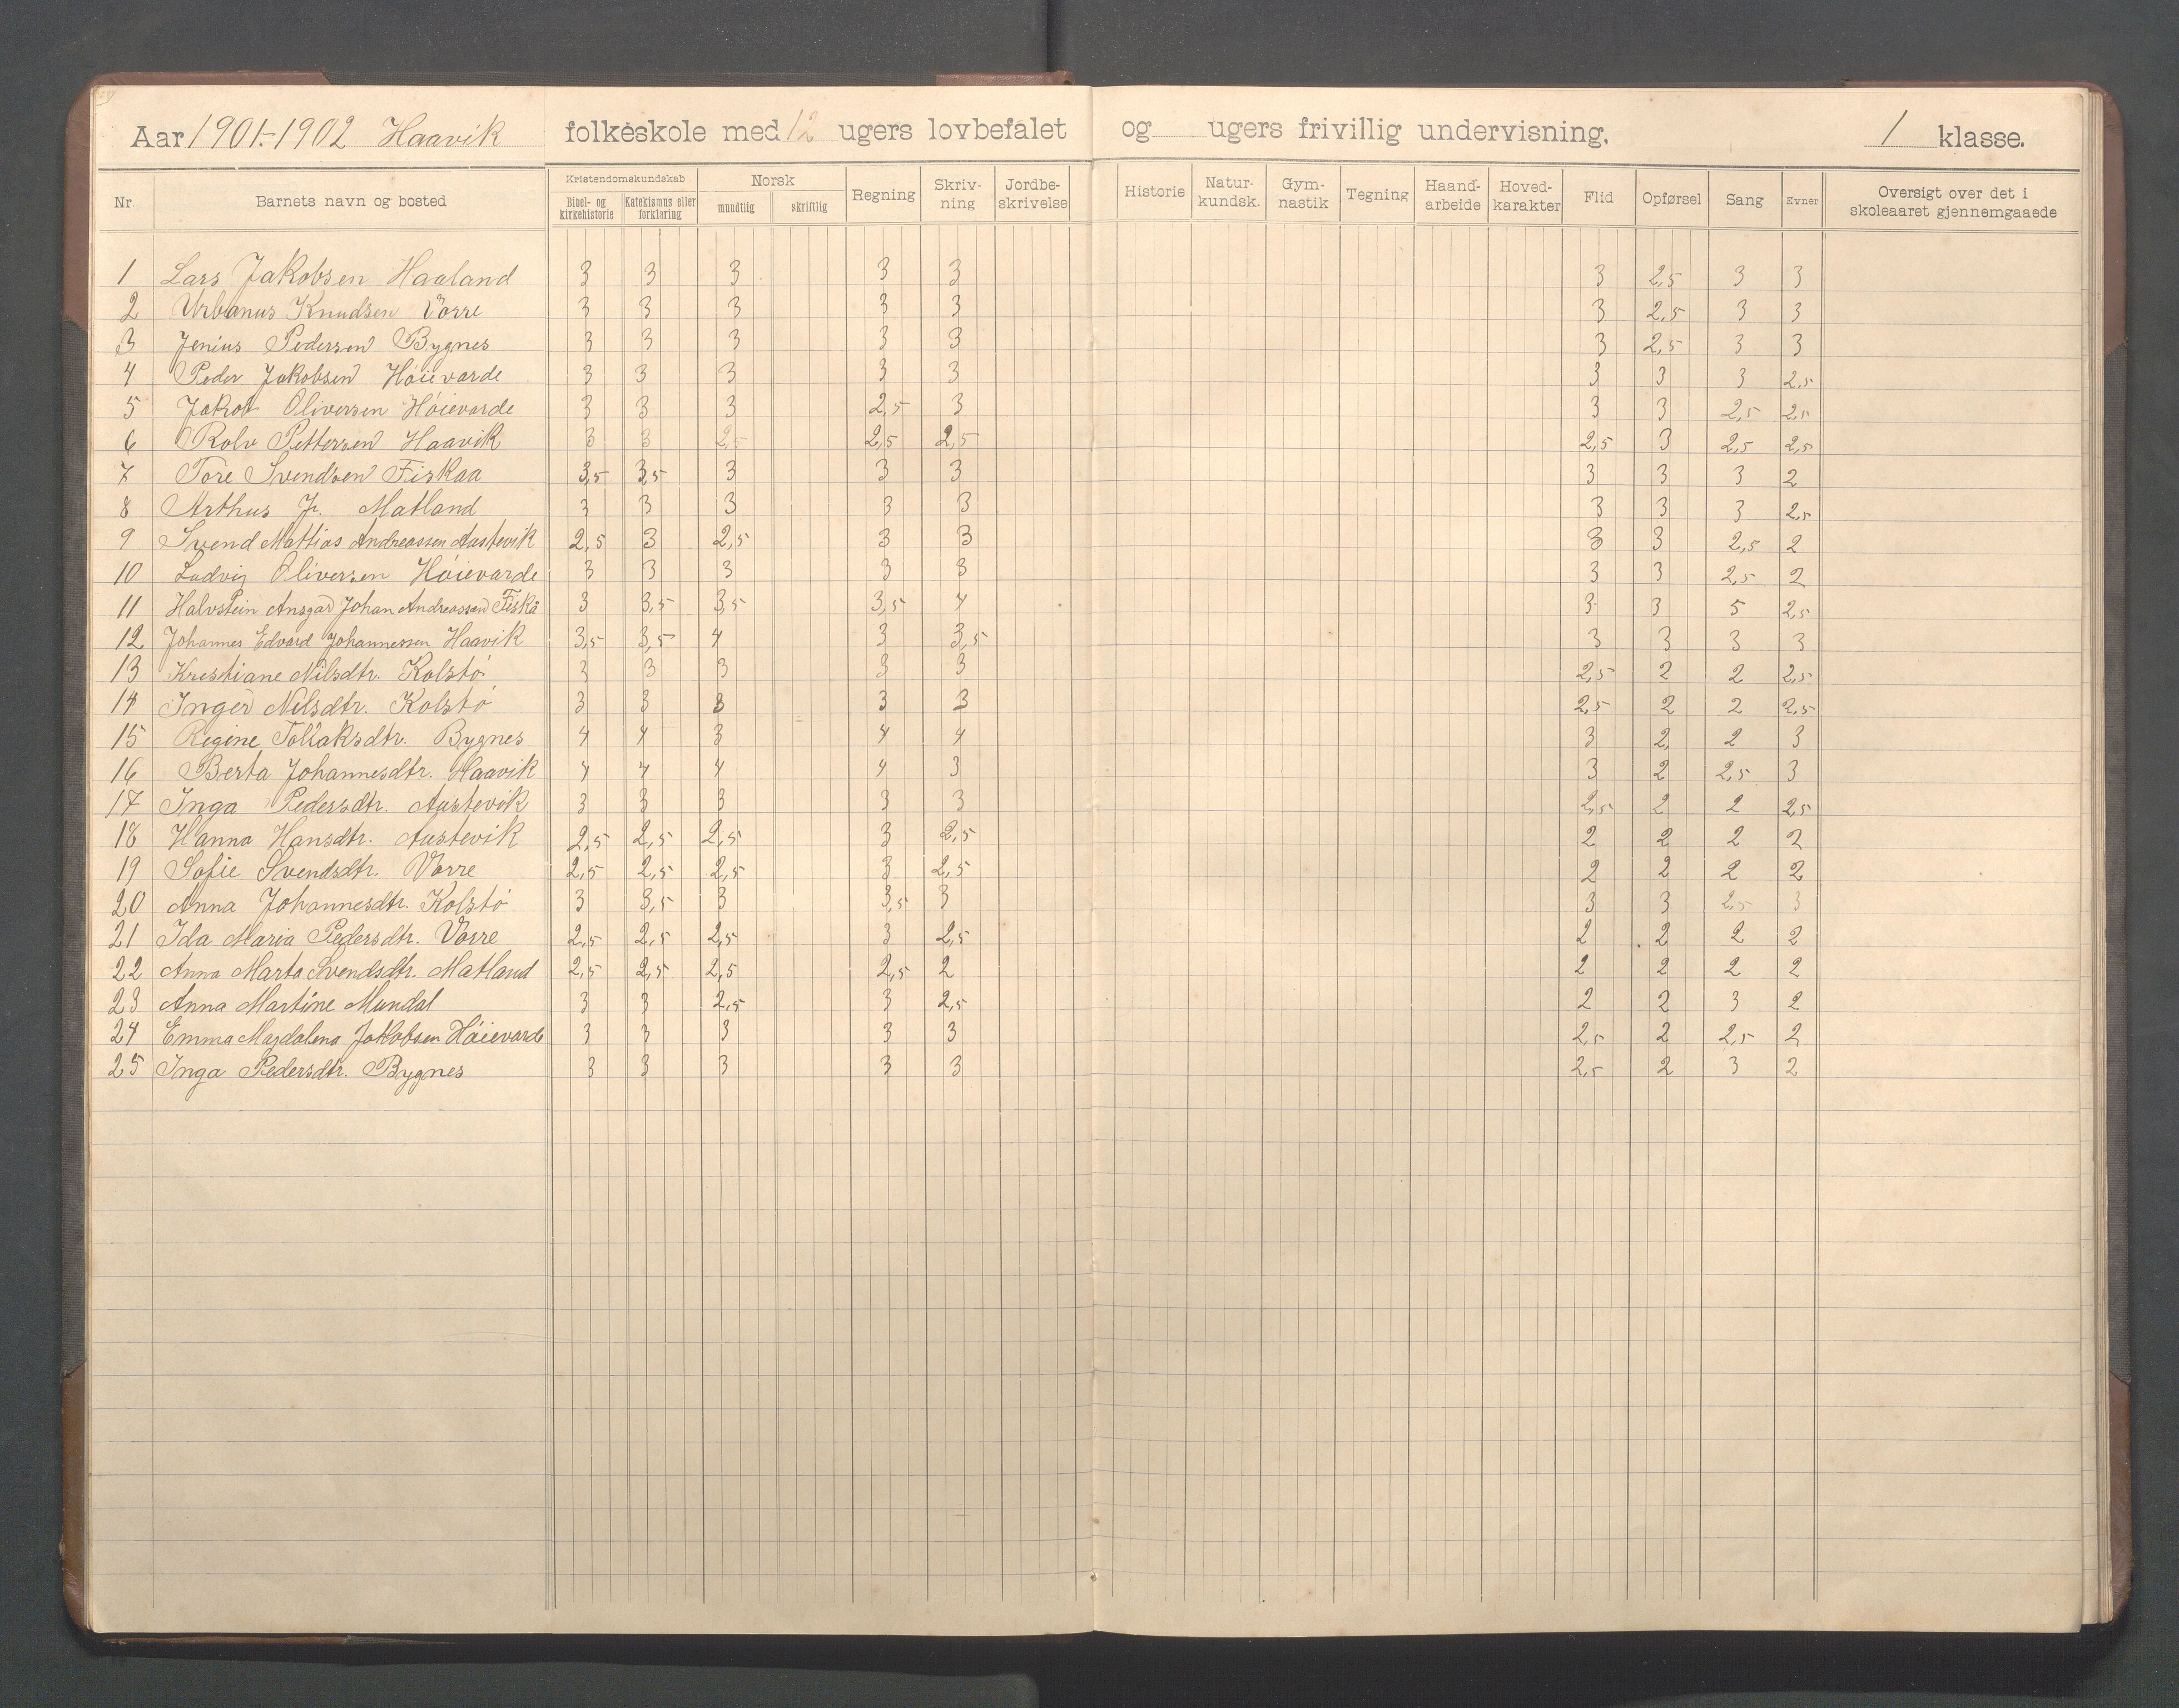 Aar 1901.-1902 Haavik folkeskole med 12 ugers lovbefalet og ugers frivillig undervisning. 1 klasse.
Nr. Barnets navn og bosted Kristendomskundskab Bibel- og kirkehistorie Katekismus eller forklaring Norsk mundtlig skriftlig Regning Skriv-ning Jordbe-skrivelse Historie Natur-kundsk. Gym-nastik Tegning Haand-arbeide Hoved-karakter Flid Opførsel Sang Evner Oversigt over det i skoleaaret gjennemgaaede
1 Lars Jakobsen Haaland 3 3 3 3 3 3 2,5 3 3
2 Urbanus Knudsen Vorre 3 3 3 3 3 3 2,5 3 3
3 Jenius Pedersen Bygnes 3 3 3 3 3 3 2,5 3 3
4 Peder Jakobsen Høievarde 3 3 3 3 3 3 3 3 2,5
5 Jakob Oliversen Høievarde 3 3 3 2,5 3 3 3 2,5 2,5
6 Rolv Pettersen Haavik 3 3 2,5 2,5 2,5 2,5 3 2,5 2,5
7 Tore Svendsen Fiskaa 3,5 3,5 3 3 3 3 3 3 2
8 Arthus J. Matland 3 3 3 3 3 3 3 3 2,5
9 Svend Mattias Andreassen Austevik 2,5 3 2,5 3 3 3 3 2,5 2
10 Ludvig Oliversen Høievarde 3 3 3 3 3 3 3 2,5 2
11 Halvstein Ansgar Johan Andreassen Fiskå 3 3,5 3,5 3,5 4 3 3 5 2,5
12 Johannes Edvard Johannessen Haavik 3,5 3,5 4 3 3,5 3 3 3 3
13 Kristiane Nilsdtr. Kolstø 3 3 3 3 3 2,5 2 2 2,5
14 Inger Nilsdtr. Kolstø 3 3 3 3 3 2,5 2 2 2,5
15 Regine Tollaksdtr. Bygnes 4 4 3 4 4 3 2 2 3
16 Berta Johannesdtr. Haavik 4 4 4 4 3 3 2 2,5 3
17 Inga Pedersdtr. Austevik 3 3 3 3 3 2,5 2 2 2,5
18 Hanna Hansdtr. Austevik 2,5 2,5 2,5 3 2,5 2 2 2 2
19 Sofie Svendsdtr. Vorre 2,5 2,5 2,5 3 2,5 2 2 2 2
20 Anna Johannesdtr. Kolstø 3 3,5 3 3,5 3 3 3 2,5 3
21 Ida Maria Pedersdtr. Vorre 2,5 2,5 2,5 3 2,5 2 2 2 2
22 Anna Marta Svendsdtr. Matland 2,5 2,5 2,5 2,5 2 2 2 2 2
23 Anna Martine Mundal 3 3 2,5 3 2,5 2 2 3 2
24 Emma Magdalena Jakobsen Høievarde 3 3 3 3 3 2,5 2 2,5 2
25 Inga Pedersdtr. Bygnes 3 3 3 3 3 2,5 2 3 2